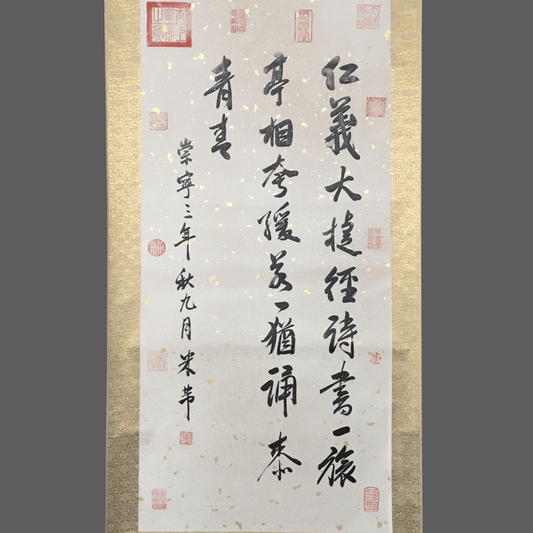 仁義大捷徑詩書一旅
亭相夸綬若々猶誦麥
青青
崇寧三年秋九月米芾